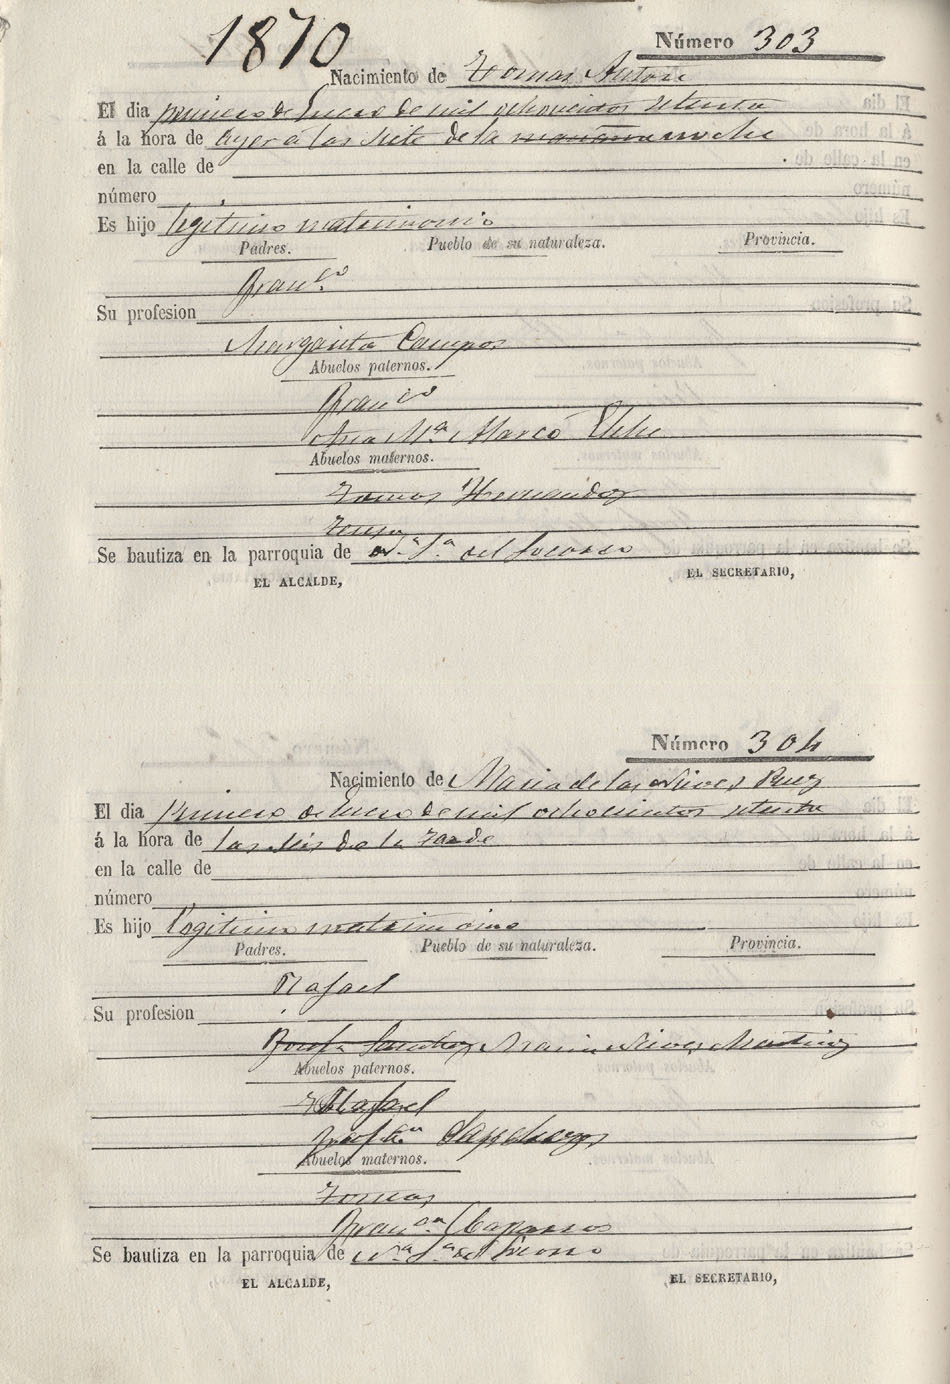 1870
Número 303
Nacimiento de Tomas Anton
El dia primero de Enero de mil ochocientos setenta
á la hora de ayer á las siete de la mañana noche
en la calle de
número
Es hijo legitimo matrimonio
Padres. Pueblo de su naturaleza. Provincia.
Franco
Su profesion
Margarita Campos
Abuelos paternos.
Franco
Ana Ma Marco Elche
Abuelos maternos.
Tomas Hernandez
Teresa
Se bautiza en la parroquia de Na Sa del Socorro
EL ALCALDE, EL SECRETARIO,
Número 304
Nacimiento de Maria de las Nieves Ruiz
El dia primero de Enero de mil ochocientos setenta
á la hora de las seis de la tarde
en la calle de
número
Es hijo legitimo matrimonio
Padres. Pueblo de su naturaleza. Provincia.
Rafael
Su profesion
Josefa Sanchez Maria Nieves Martinez
Abuelos paternos.
Rafael
Josefa Sanchez
Abuelos maternos.
Tomas
Franca Chaparro
Se bautiza en la parroquia de Na Sa del Socorro
EL ALCALDE, EL SECRETARIO,